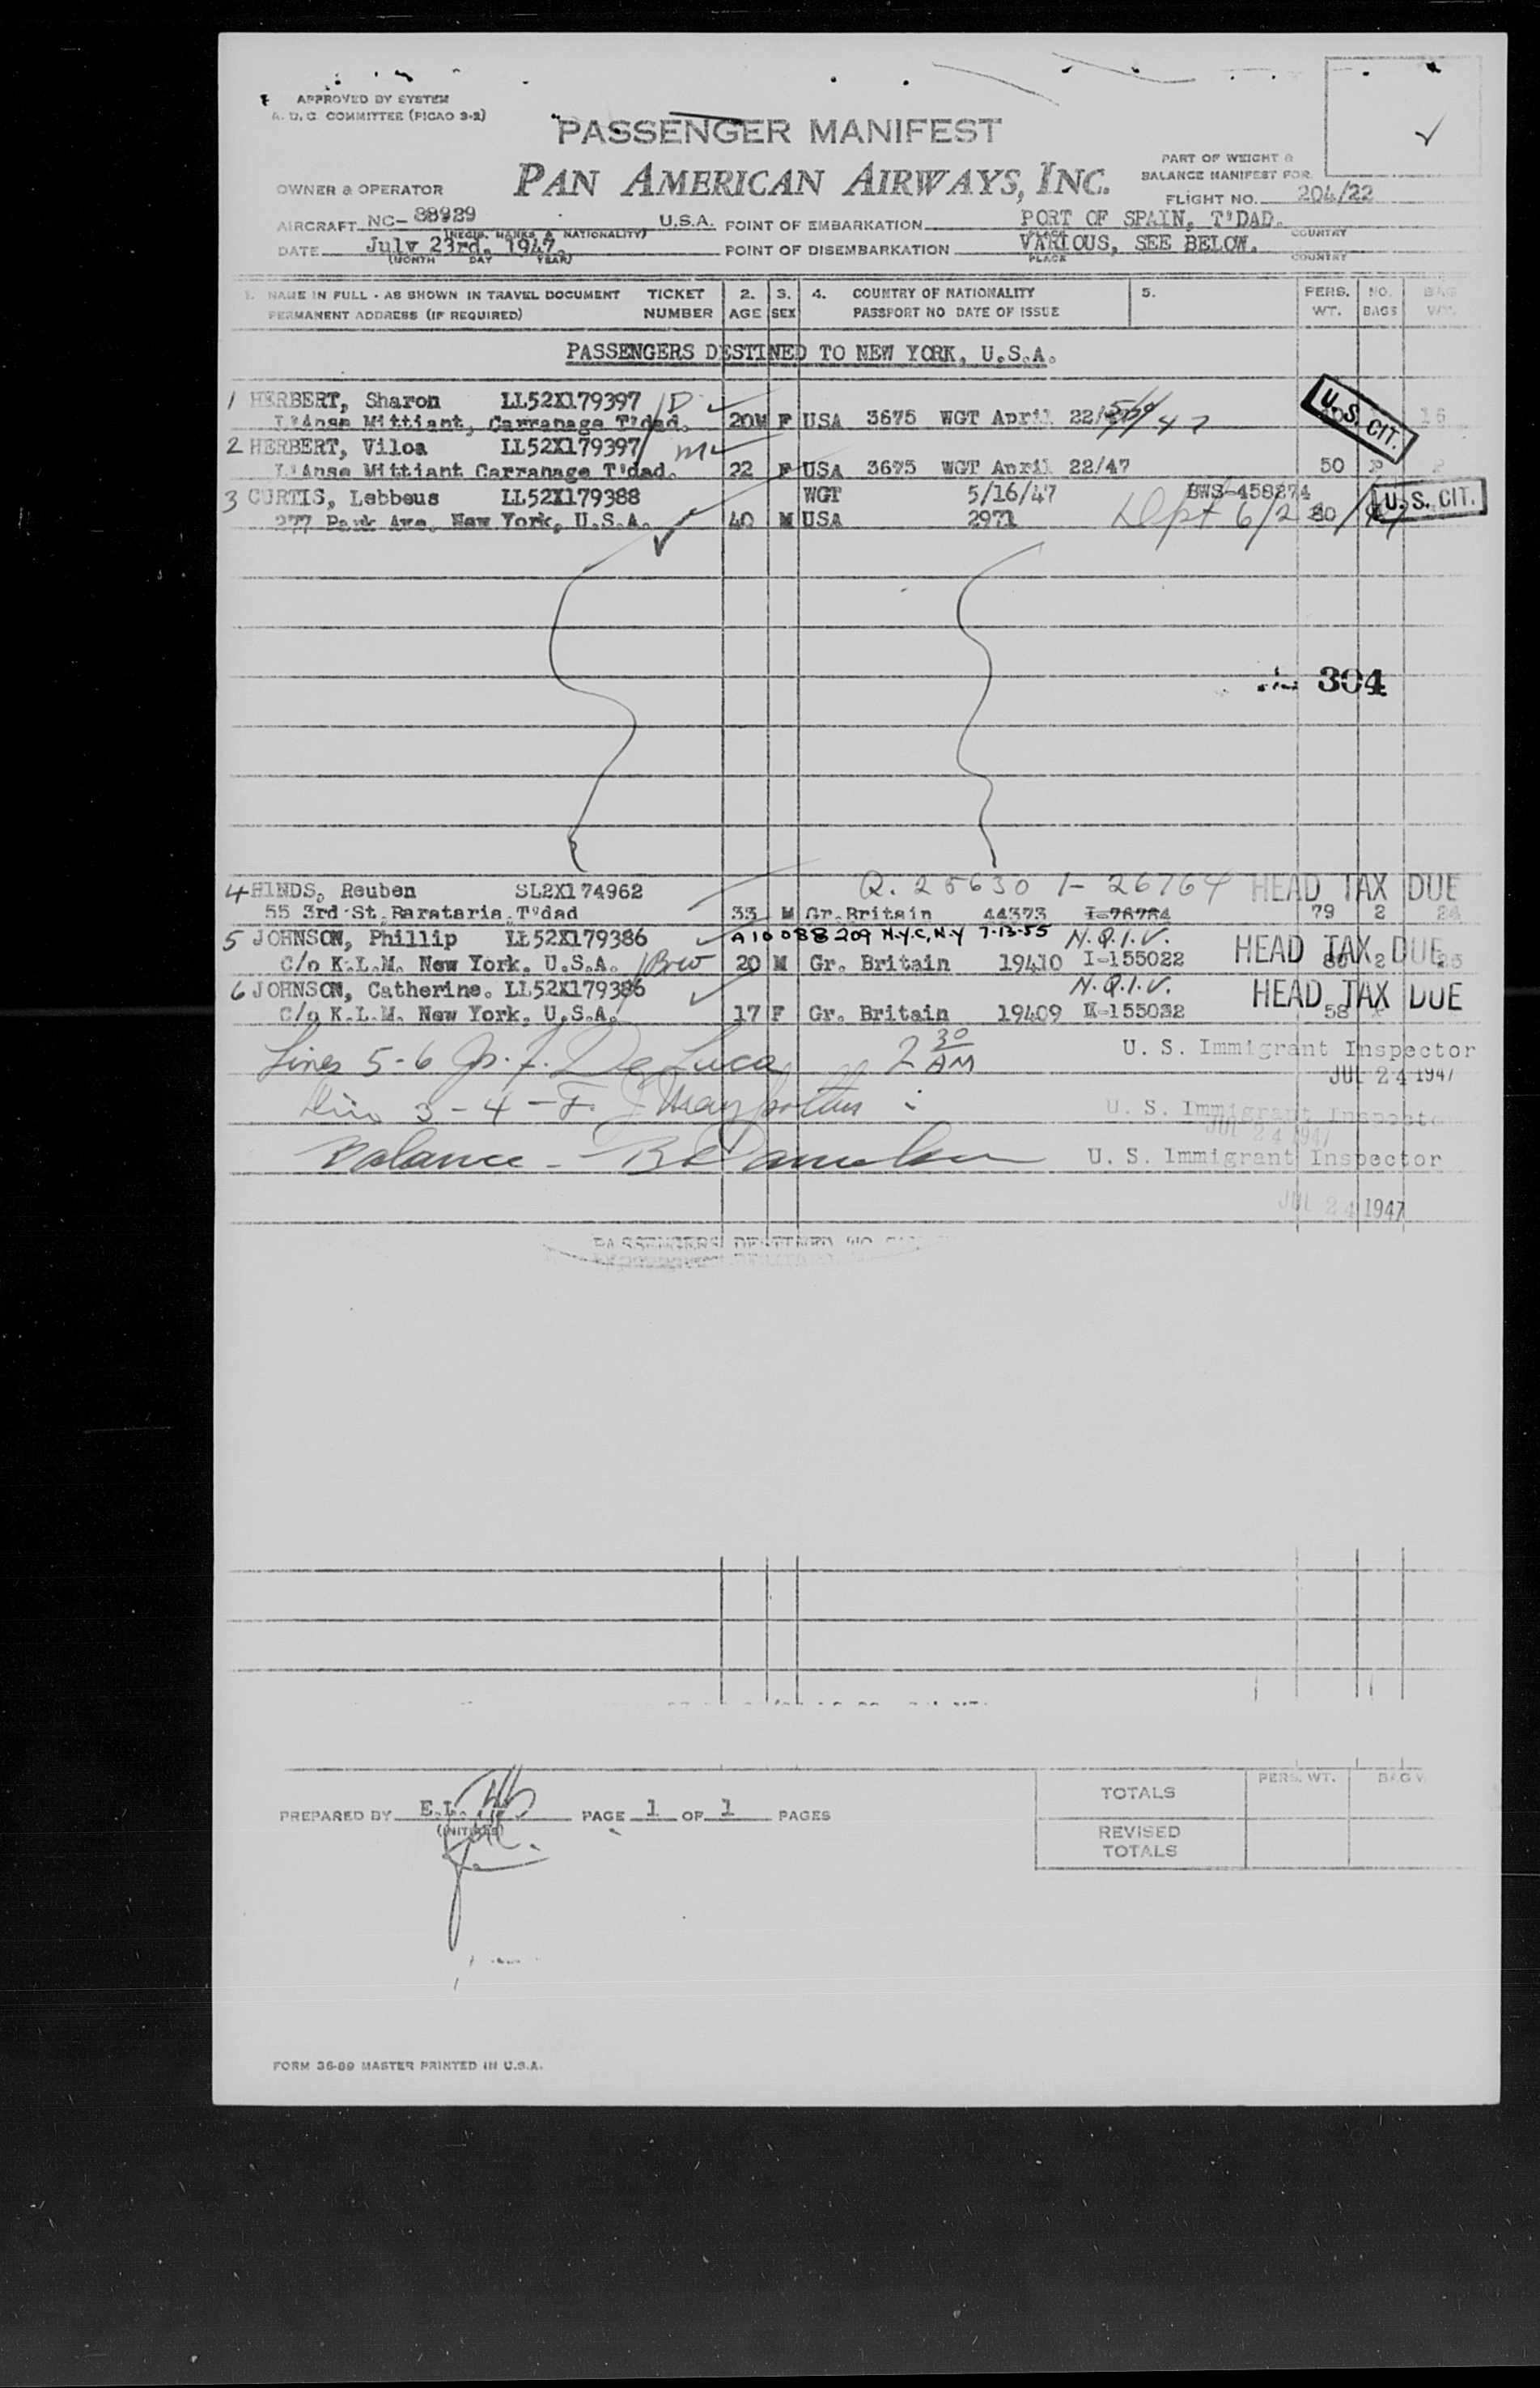 APPROVED BY SYSTEM
A. D. C. COMMITTEE (PICAO 3-2)
PASSENGER MANIFEST
PAN AMERICAN AIRWAYS, INC.
PART OF WEIGHT &
BALANCE MANIFEST FOR
OWNER & OPERATOR
FLIGHT NO. 204/22
AIRCRAFT NC-88929 U.S.A. POINT OF EMBARKATION PORT OF SPAIN, T'DAD.
(REGIS. MARKS & NATIONALITY) PLACE COUNTRY
DATE July 23rd. 1947. POINT OF DISEMBARKATION VARIOUS, SEE BELOW.
(MONTH DAY YEAR) PLACE COUNTRY
1. NAME IN FULL - AS SHOWN IN TRAVEL DOCUMENT TICKET 2. 3. 4. COUNTRY OF NATIONALITY 5. PERS. NO. BAG
PERMANENT ADDRESS (IF REQUIRED) NUMBER AGE SEX PASSPORT NO DATE OF ISSUE WT. BAGS WT.
PASSENGERS DESTINED TO NEW YORK, U.S.A.
1 HERBERT, Sharon LL52X179397 U.S. CIT.
L'Anse Mittiant, Carranage T'dad. 20M F USA 3675 WGT April 22/ 47 16
2 HERBERT, Viloa LL52X179397
L'Anse Mittiant Carranage T'dad. 22 F USA 3675 WGT April 22/47 50
3 CURTIS, Lebbeus LL52X179388 WGT 5/16/47 BWS-458274 U.S. CIT.
277 Park Ave. New York, U.S.A. 40 M USA 2971 Dept 6/2
304
4 HINDS, Reuben SL2X174962 Q. 25630 I- 26764 HEAD TAX DUE
55 3rd St. Barataria, T'dad 33 M Gr. Britain 44373 I-78784 79 2 24
5 JOHNSON, Phillip LL52X179386 A10 088 209 N.Y.C, N.Y 7-13-55 N.Q.I.V. HEAD TAX DUE
C/o K.L.M. New York, U.S.A. 20 M Gr. Britain 19410 I-155022 2
6 JOHNSON, Catherine. LL52X179386 N.Q.I.V. HEAD TAX DUE
C/o K.L.M. New York, U.S.A. 17 F Gr. Britain 19409 I-155032 58
Lines 5-6 Jos. F. DeLuca 2 30 AM U. S. Immigrant Inspector
JUL 24 1947
3 - 4 - F. U. S. Immigrant Inspector
JUL 24 1947
Balance - U. S. Immigrant Inspector
JUL 24 1947
PREPARED BY E.L. PAGE 1 OF 1 PAGES
(INITIALS)
PERS. WT. BAG W
TOTALS
REVISED
TOTALS
FORM 36-89 MASTER PRINTED IN U.S.A.